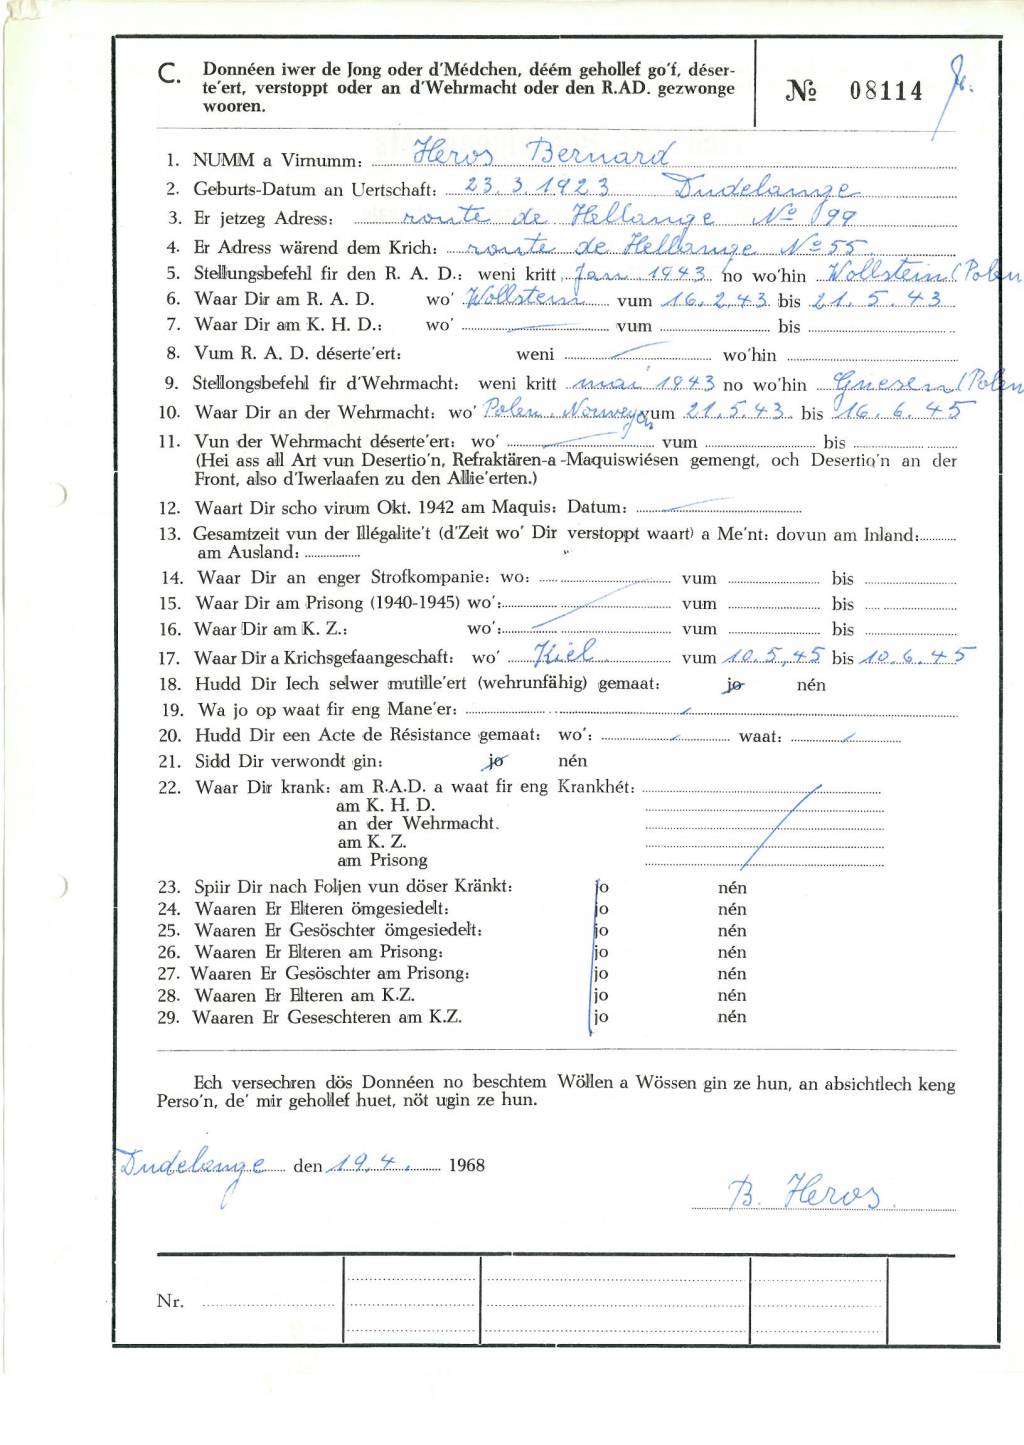 C. Donnéen iwer de Jong oder d'Médchen, déém gehollef go'f, déser-
te'ert, verstoppt oder an d'Wehrmacht oder den R.AD. gezwonge
wooren.
№ 08114
1. NUMM a Virnumm: Heros Bernard
2. Geburts-Datum an Uertschaft: 23.3.1923 Dudelange
3. Er jetzeg Adress: route de Hellange № 99
4. Er Adress wärend dem Krich: route de Hellange № 55
5. Stellungsbefehl fir den R. A. D.: weni kritt Jan 1943 no wo'hin Wollstein/Polen
6. Waar Dir am R. A. D. wo' Wollstein vum 16.2.43 bis 21.5.43
7. Waar Dir am K. H. D.: wo' vum bis
8. Vum R. A. D. déserte'ert: weni wo'hin
9. Stellongsbefehl fir d'Wehrmacht: weni kritt mai 1943 no wo'hin Gnesen/Polen
10. Waar Dir an der Wehrmacht: wo' Polen. Norwegen vum 21.5.43 bis 16.6.45
11. Vun der Wehrmacht déserte'ert: wo' vum bis
(Hei ass all Art vun Desertio'n, Refraktären-a-Maquiswiésen gemengt, och Desertio'n an der
Front, also d'Iwerlaafen zu den Allie'erten.)
12. Waart Dir scho virum Okt. 1942 am Maquis: Datum:
13. Gesamtzeit vun der Illégalite't (d'Zeit wo' Dir verstoppt waart) a Me'nt: dovun am Inland:
am Ausland:
14. Waar Dir an enger Strofkompanie: wo: vum bis
15. Waar Dir am Prisong (1940-1945) wo': vum bis
16. Waar Dir am K. Z.: wo': vum bis
17. Waar Dir a Krichsgefaangeschaft: wo' Kiel vum 10.5.45 bis 10.6.45
18. Hudd Dir Iech selwer mutille'ert (wehrunfähig) gemaat: jo nén
19. Wa jo op waat fir eng Mane'er:
20. Hudd Dir een Acte de Résistance gemaat: wo': waat:
21. Sidd Dir verwondt gin: jo nén
22. Waar Dir krank: am R.A.D. a waat fir eng Krankhét:
am K. H. D.
an der Wehrmacht.
am K. Z.
am Prisong
23. Spiir Dir nach Foljen vun döser Kränkt: jo nén
24. Waaren Er Elteren ömgesiedelt: jo nén
25. Waaren Er Gesöschter ömgesiedelt: jo nén
26. Waaren Er Elteren am Prisong: jo nén
27. Waaren Er Gesöschter am Prisong: jo nén
28. Waaren Er Elteren am K.Z. jo nén
29. Waaren Er Geseschteren am K.Z. jo nén
Ech versechren dös Donnéen no beschtem Wöllen a Wössen gin ze hun, an absichtlech keng
Perso'n, de' mir gehollef huet, nöt ugin ze hun.
Dudelange den 19.4. 1968
B. Heros
Nr.